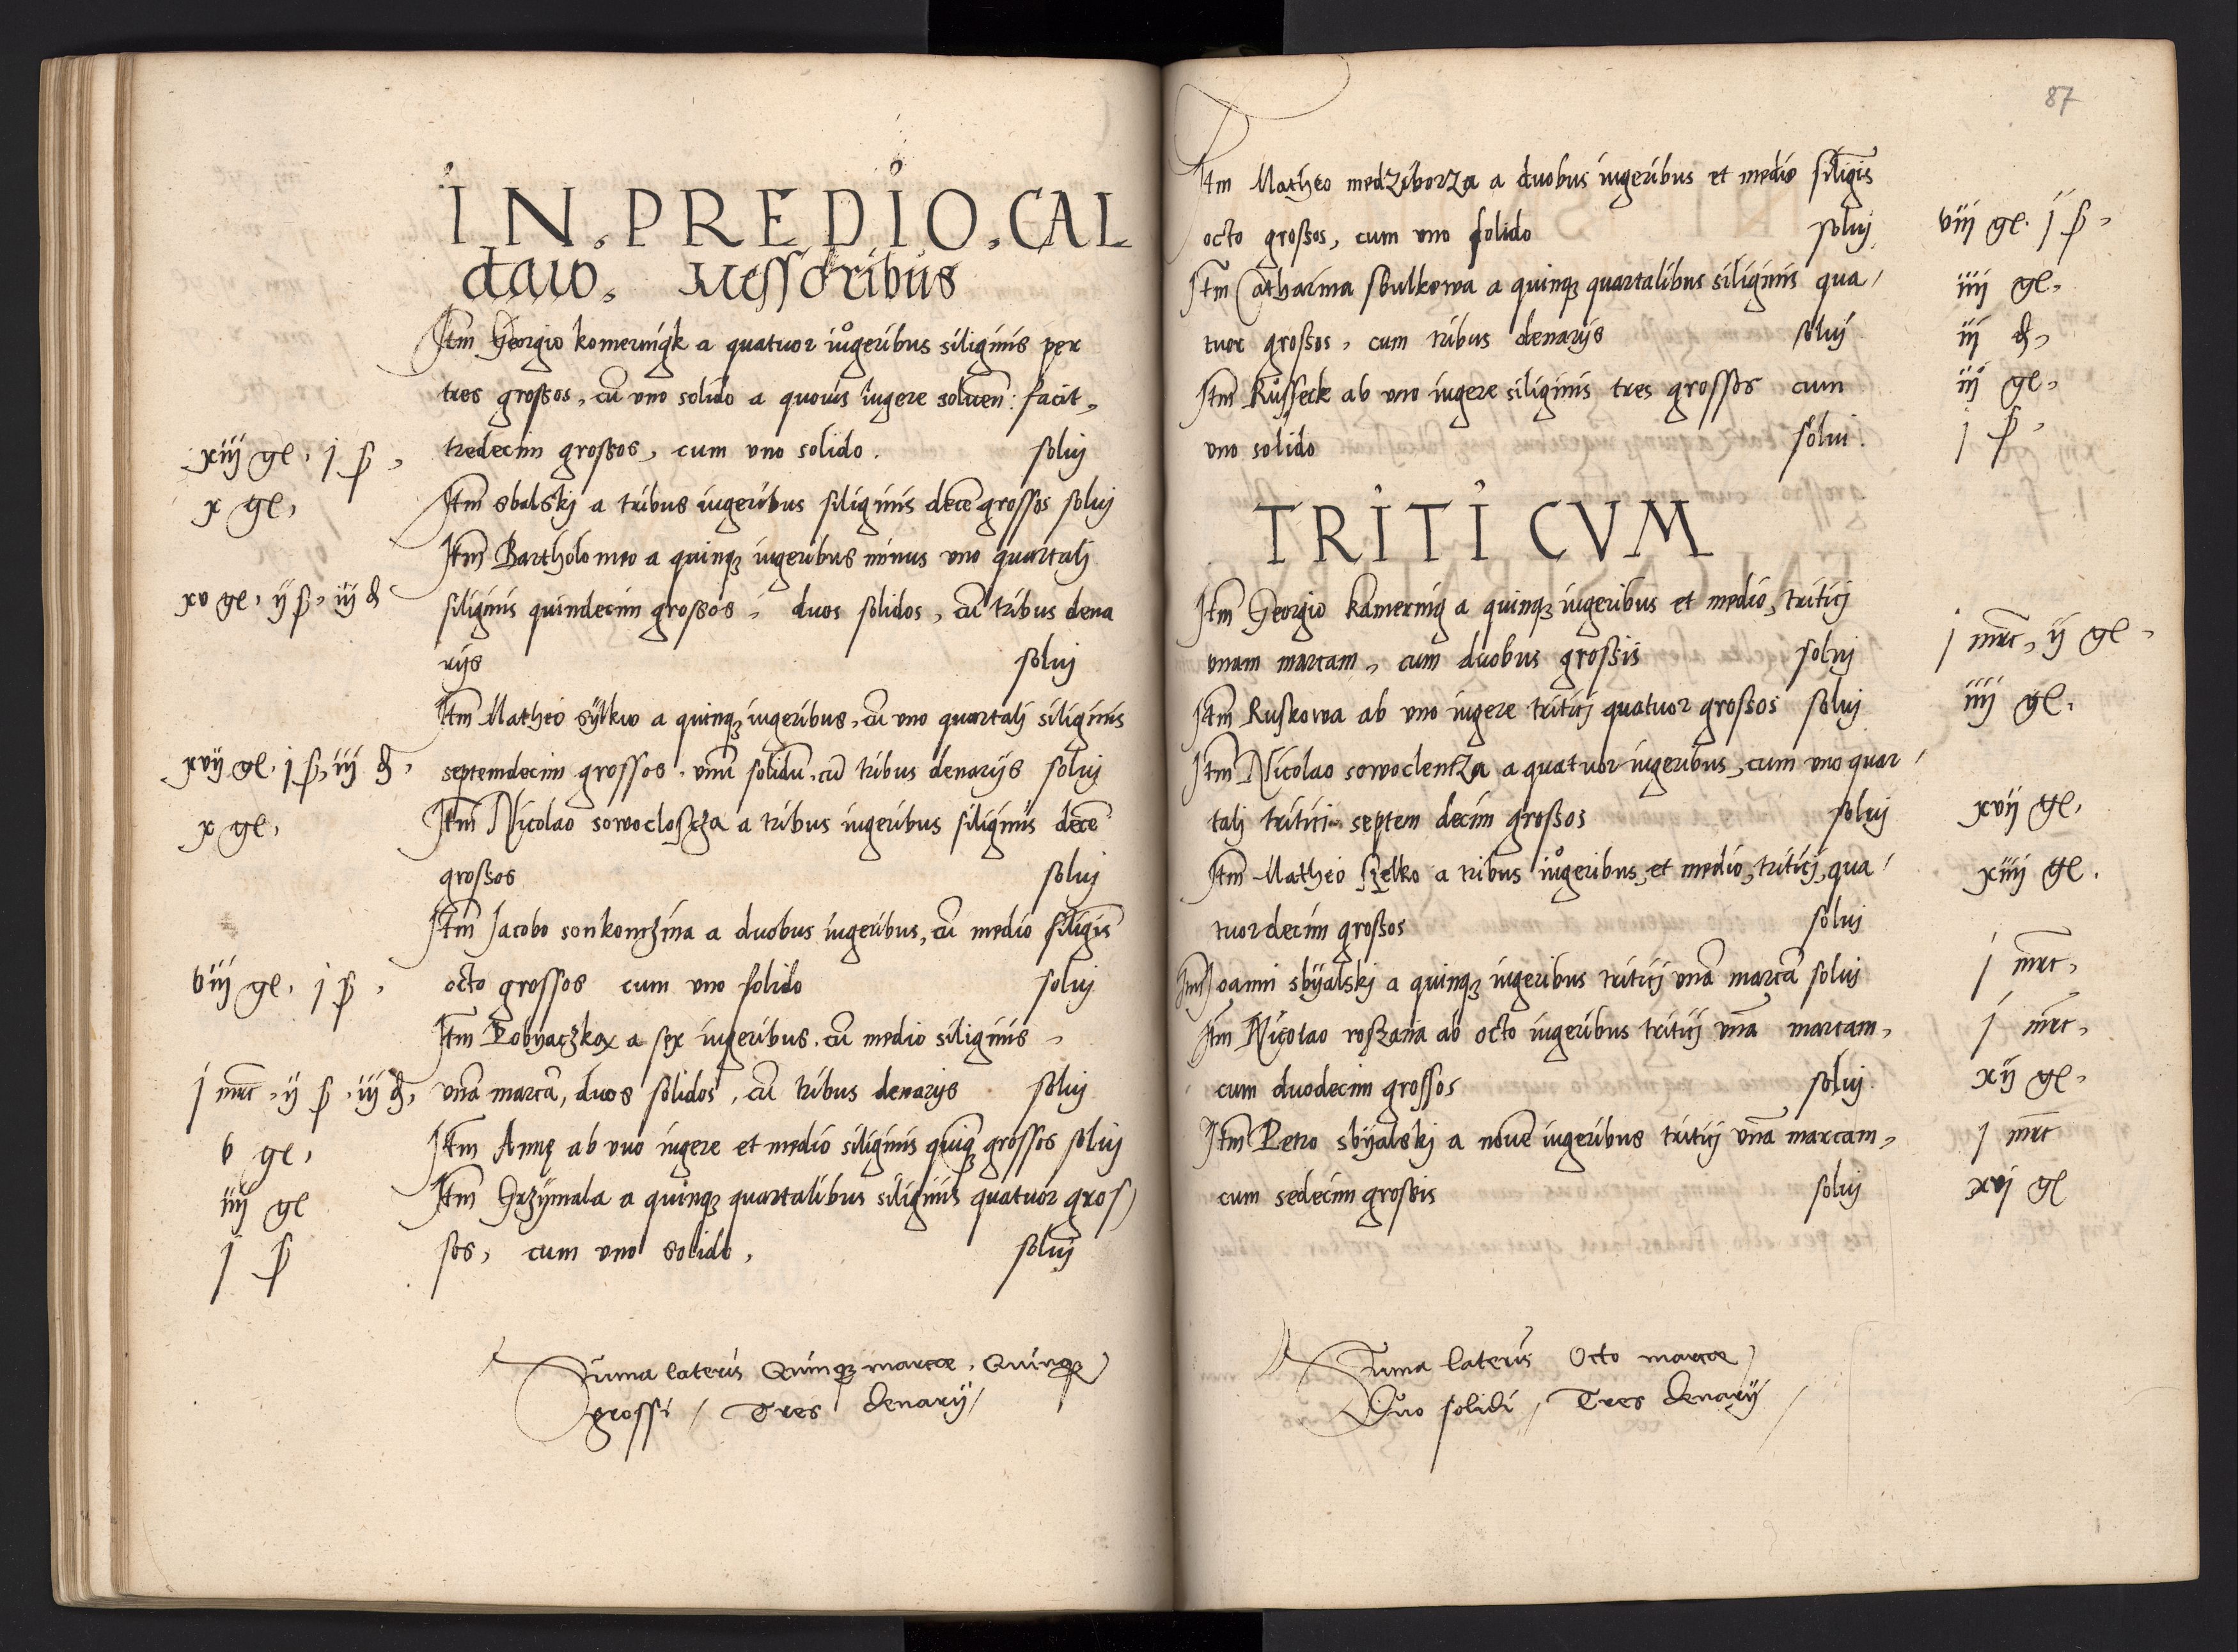 IN. PREDIO. CAL
dawo. Messoribus
Itm Georgio komernigk a quatuor iugeribus siliginis per
tres grossos, cū uno solido a quovis iugere soluen: facit,
xiij gl, j ꝭ, tredecim grossos, cum uno solido. solvj
x gl, Itm sbalskj a tribus iugeribus siliginis decē grossos solvj
Itm Bartholomeo a quinqȝ iugeribus minus uno quartalj
xv gl, ij ꝭ, iij ₰ siliginis quindecim grossos, duos solidos, cū tribus dena
rijs solvj
Itm Matheo sylkw a quinqȝ iugeribus, cū uno quartalj siliginis
xvij gl, j ꝭ, iij ₰, septemdecim grossos, vnū solidū, cū tribus denarijs solvj
x gl, Itm Nicolao sowocloscza a tribus iugeribus siliginis decē
grossos solvj
Itm Jacobo sonkomzina a duobus iugeribus, cū medio siligīs
viij gl, j ꝭ, octo grossos cum uno solido solvj
Itm Pobyaczkax a sex iugeribus, cū medio siliginis,
j mrc, ij ꝭ, iij ₰, vnā marcā, duos solidos, cū tribus denarijs solvj
v gl, Itm Annę ab vno iugere et medio siliginis quiqȝ grossos solvj
iiij gl Itm Grzymala a quinqȝ quartalibus siliginis quatuor gros
j ꝭ sos, cum uno solido, solvj
Suma lateris Quinqȝ marcæ, Quinqȝ
grossi / Tres denarij /
87
Itm Matheo medziborza a duobus iugeribus et medio siligīs
octo grossos, cum uno solido solvj viij gl. j ꝭ,
Itm Catharina sbulkowa a quinqȝ quartalibus siliginis qua/ iiij gl,
tuor grossos, cum tribus denarijs solvj iij ₰,
Itm Russeck ab uno iugere siliginis tres grossos cum iij gl,
uno solido solvi. j ꝭ,
TRITICVM
Itm Georgio kamernig a quinqȝ iugeribus et medio, triticj
unam marcam, cum duobus grossis solvj j mrc, ij gl,
Itm Ruskowa ab uno iugere triticj quatuor grossos solvj iiij gl.
Itm Nicolao sowoclentza a quatuor iugeribus, cum uno quar/
talj tritici septem decim grossos solvj xvij gl,
Itm Matheo szelko a tribus iugeribus, et medio, triticj, qua/ xiiij gl.
tuordecim grossos solvj
Itm Joanni sbyalskj a quinqȝ iugeribus triticj unā marcā solvj j mrc,
Itm Nicolao roszana ab octo iugeribus triticj unā marcam, j mrc,
cum duodecim grossos solvj. xij gl,
Itm Petro sbyalskj a novē iugeribus triticj unā marcam, j mrc
cum sedecim grossis solvj xvj gl
Suma lateris Octo marcæ /
Duo solidi / Tres denarij /